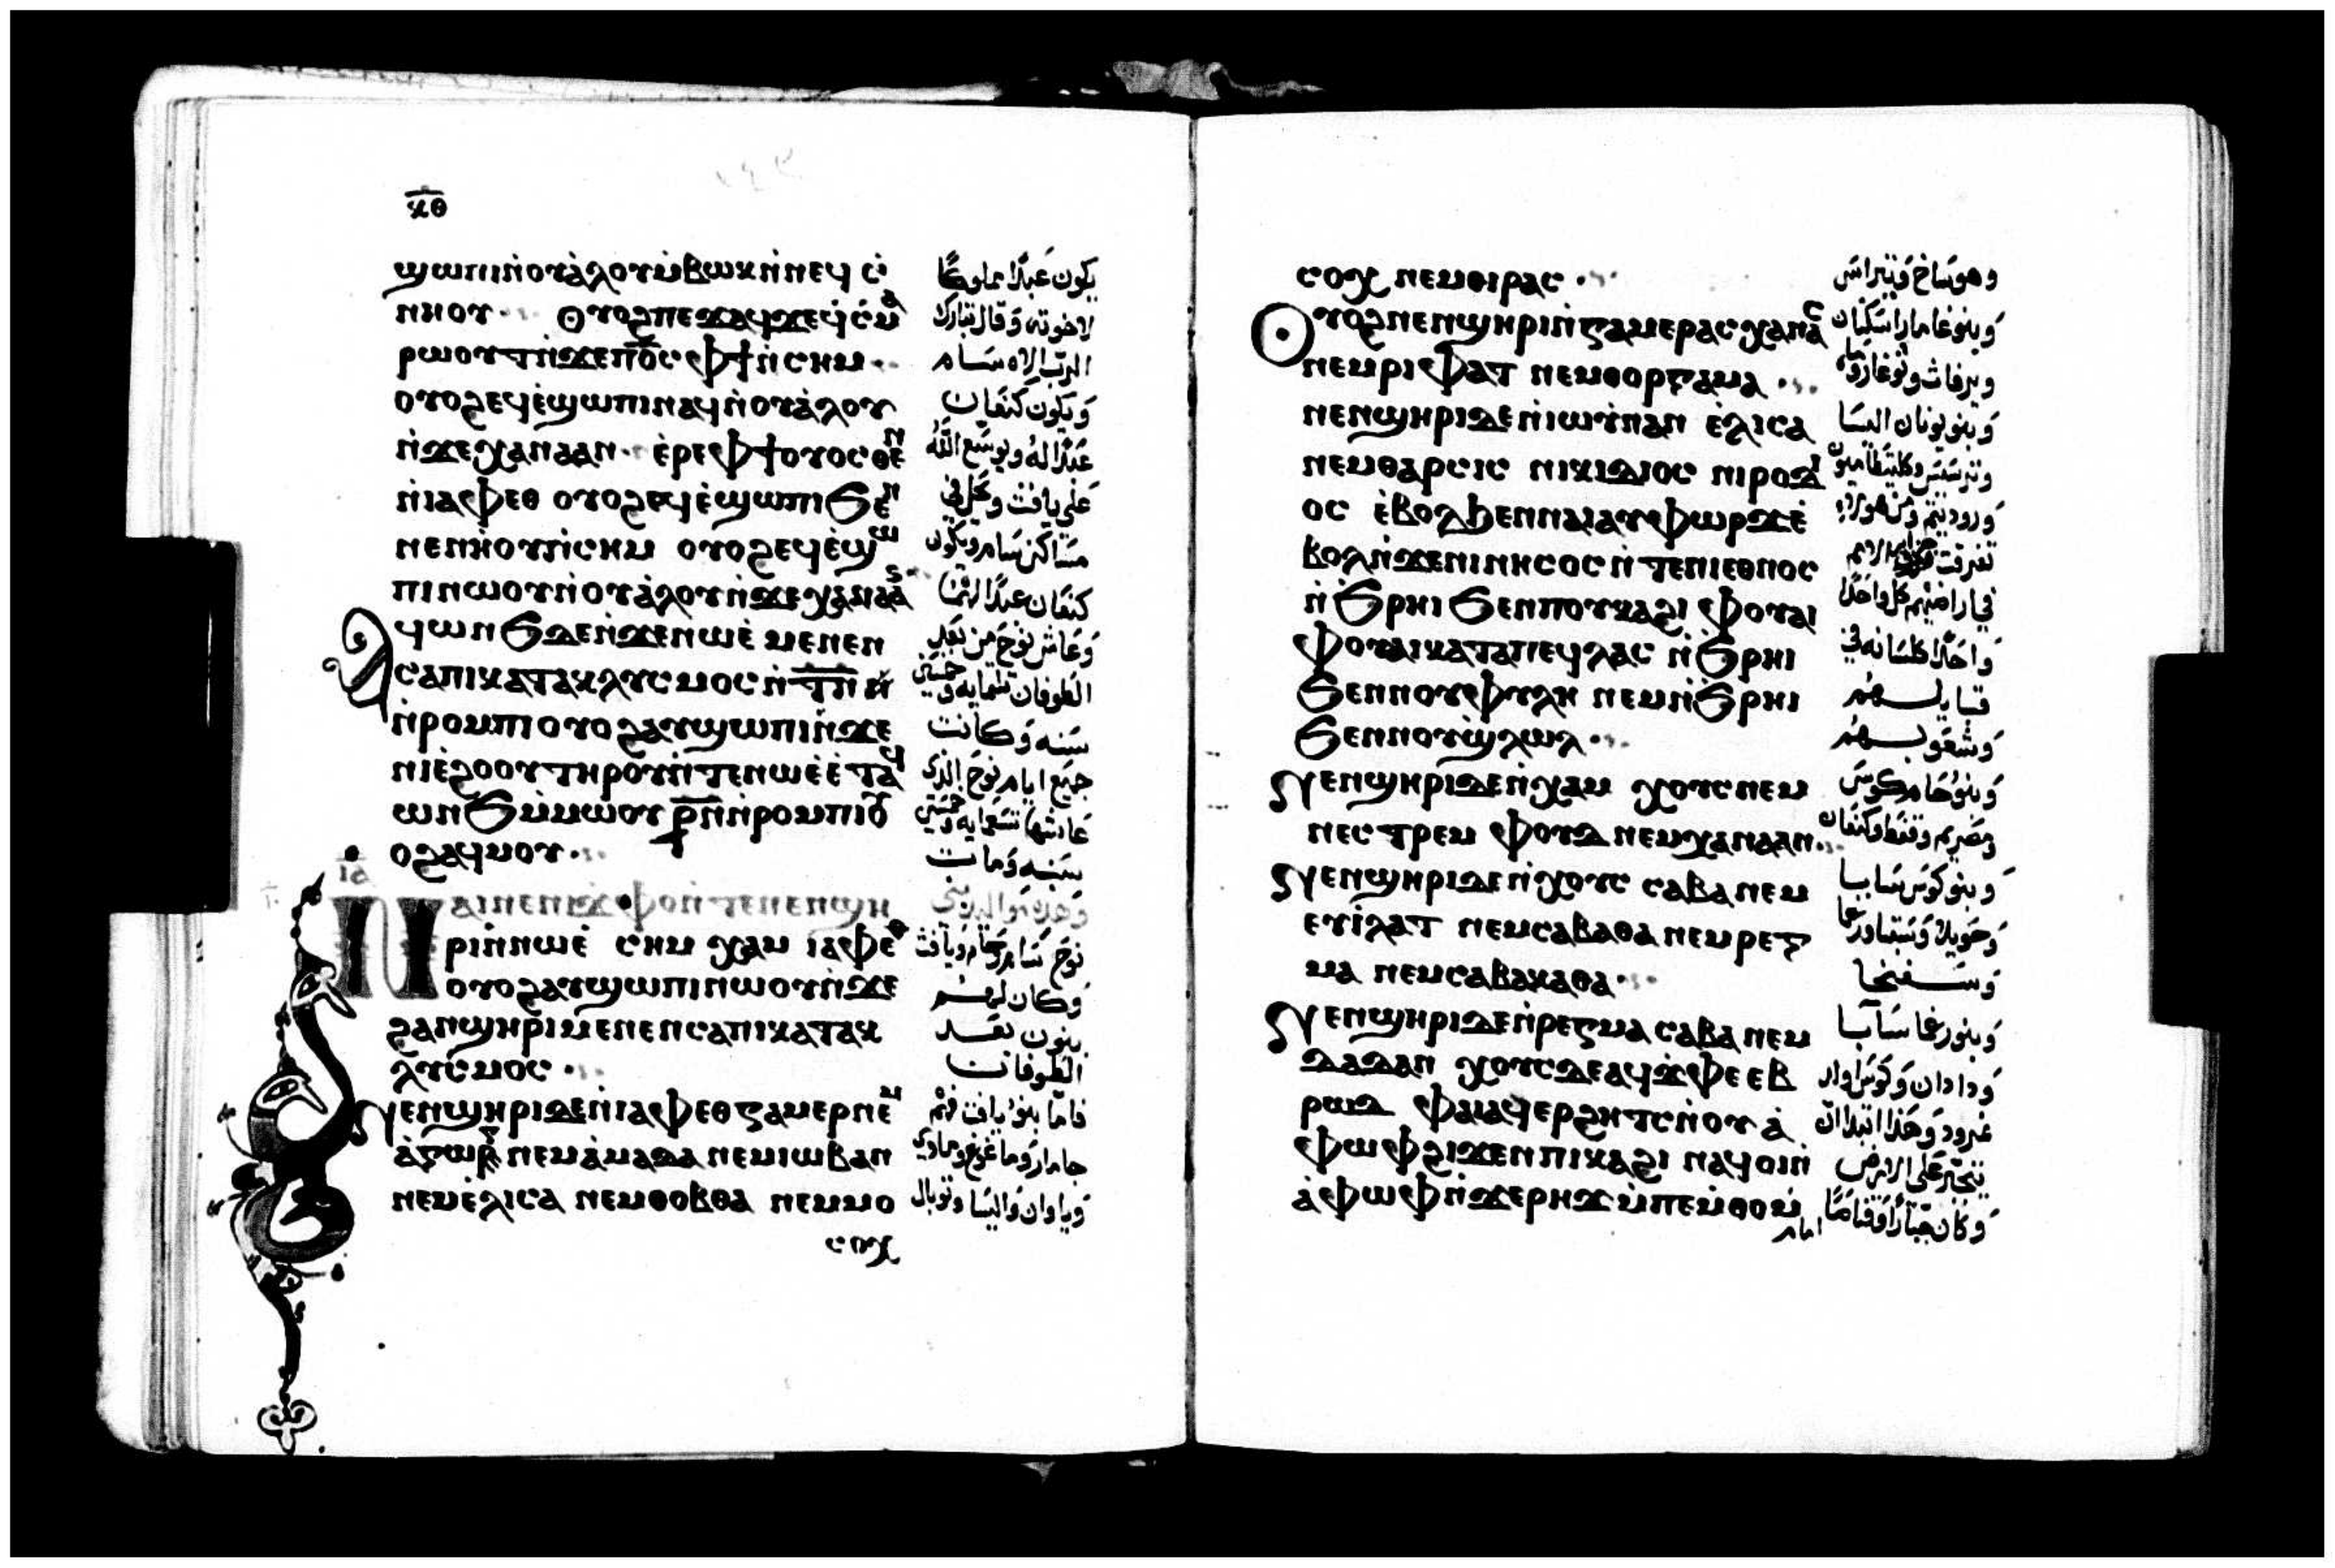 ⲕ̅ⲑ̅
ϣⲱⲡⲓⲛ̀ⲟⲩⲁ̀ⲗⲟⲩⲙ̀ⲃⲱⲕⲛ̀ⲛⲉϥ ⲥ̀
ⲛⲏⲟⲩ ⲟⲩⲟϩⲡⲉϫⲁϥϫⲉϥ̀ⲥ̀ⲙⲁ
ⲣⲱⲟⲩⲧⲛ̀ϫⲉⲡϭ̅ⲥ̅ ⲫϯⲛ̀ⲥⲏⲙ
ⲟⲩⲟϩⲉϥⲉ̀ϣⲱⲡⲓⲛⲁϥⲛ̀ⲟⲩⲁ̀ⲗⲟⲩ
ⲛ̀ϫⲉⲭⲁⲛⲁⲁⲛ ⲉ̀ⲣⲉⲫϯⲟⲩⲟⲥⲑⲉⲛ
ⲛ̀ⲓⲁⲫⲉⲑ ⲟⲩⲟϩⲉϥⲉ̀ϣⲱⲡⲓϧⲉⲛ
ⲛⲉⲛⲏ̀ⲟⲩⲛ̀ⲥⲏⲙ ⲟⲩⲟϩⲉϥⲉ̀ϣⲱ
ⲡⲓⲛⲱⲟⲩⲛ̀ⲟⲩⲁ̀ⲗⲟⲩⲛ̀ϫⲉⲭⲁⲛⲁⲁ
ⲁϥⲱⲛϧⲇⲉⲛ̀ϫⲉⲛⲱⲉ̀ ⲙⲉⲛⲉⲛ
ⲥⲁⲡⲓⲕⲁⲧⲁⲕⲗⲩⲥⲙⲟⲥⲛ̀ⲧ̅ⲛ̅ ⲛ̀
ⲛ̀ⲣⲟⲙⲡⲓⲟⲩⲟϩⲁⲩϣⲱⲡⲓⲛ̀ϫⲉ
ⲛⲓⲉ̀ϩⲟⲟⲩⲧⲏⲣⲟⲩⲛ̀ⲧⲉⲛⲱⲉ̀ⲉ̀ⲧⲁϥ
ⲱⲛϧⲙ̀ⲙⲱⲟⲩ ⲣ̅ⲛ̅ⲛ̀ⲣⲟⲙⲡⲓⲟⲩ
ⲟϩⲁϥⲙⲟⲩ
ⲓⲁ
ⲛⲁⲓⲛⲉⲛⲓϫⲫⲟⲛ̀ⲧⲉⲛⲉⲛϣⲏ
ⲣⲓⲛ̀ⲛⲱⲉ̀ ⲥⲏⲙ ⲭⲁⲙ ⲓⲁⲫⲉⲑ
ⲟⲩⲟϩⲁⲩϣⲱⲡⲓⲛⲱⲟⲩⲛ̀ϫⲉ
ϩⲁⲛϣⲏⲣⲓⲙⲉⲛⲉⲛⲥⲁⲡⲓⲕⲁⲧⲁⲕ
ⲗⲩⲥⲙⲟⲥ
ⲛⲉⲛϣⲏⲣⲓⲇⲉⲛ̀ⲓⲁⲫⲉⲑⲅⲁⲙⲉⲣⲛⲉⲙ
ⲁ̀ⲅⲱⲣ ⲛⲉⲙⲁ̀ⲙⲁⲇⲁ ⲛⲉⲙⲓⲱⲃⲁⲛ
ⲛⲉⲙⲉ̀ⲗⲓⲥⲁ ⲛⲉⲙⲑⲟⲃⲑⲁ ⲛⲉⲙⲙⲟ
ⲥⲟⲭ
يكون عبدًا مملوكًا
لاخوته وقال تبارك
الرب الاه سام
ويكون كنعان
عبدًا له ويوسع الله
علي يافث وكل في
مساكن سام ويكون
كنعان عبدًا لهما
وعاش نوح من بعد
الطوفان ثلثمايه وخمسين
سنه وكانت
جميع ايام نوح الذي
عاشها تسعمايه وخمسين
سنه ومات
نوح سام وحام ويافث
وكان لهم
بنون بعد
الطوفان
فاما بنو يافث فهم
جامار وماغوغ ومادي
وياوان واليسا وتوبال
ⲥⲟⲭ ⲛⲉⲙⲑⲓⲣⲁⲥ
ⲟⲩⲟϩⲛⲉⲛϣⲏⲣⲓⲛ̀ⲅⲁⲙⲉⲣⲁⲥⲭⲁⲛⲁⲥ
ⲛⲉⲙⲣⲓⲫⲁⲧ ⲛⲉⲙⲑⲟⲣⲅⲁⲙⲁ
ⲛⲉⲛϣⲏⲣⲓⲇⲉⲛ̀ⲓⲱⲩ̀ⲛⲁⲛ ⲉ̀ⲗⲓⲥⲁ
ⲛⲉⲙⲑⲁⲣⲥⲓⲥ ⲛⲓⲕⲓⲇⲓⲟⲥ ⲛⲓⲣⲟⲇⲓ
ⲟⲥ ⲉ̀ⲃⲟⲗϧⲉⲛⲛⲁⲓⲁⲩⲫⲱⲣϫⲉ̀
ⲃⲟⲗⲛ̀ϫⲉⲛⲓⲛⲏⲥⲟⲥ ⲛ̀ⲧⲉⲛⲓⲉⲑⲛⲟⲥ
ⲛ̀ϧⲣⲏⲓ ϧⲉⲛⲡⲟⲩⲕⲁϩⲓ ⲫⲟⲩⲁⲓ
ⲫⲟⲩⲁⲓⲕⲁⲧⲁⲡⲉϥⲗⲁⲥ ⲛ̀ϧⲣⲏⲓ
ϧⲉⲛⲛⲟⲩⲫⲩⲗⲏ ⲛⲉⲙⲛ̀ϧⲣⲏⲓ
ϧⲉⲛⲛⲟⲩϣ̀ⲗⲱⲗ
ⲛⲉⲛϣⲏⲣⲓⲇⲉⲛ̀ⲭⲁⲙ ⲭⲟⲩⲥⲛⲉⲙ
ⲛⲉⲥⲧⲣⲉⲙ ⲫⲟⲩⲇ ⲛⲉⲙⲭⲁⲛⲁⲁⲛ
ⲛⲉⲛϣⲏⲣⲓⲇⲉⲛ̀ⲭⲟⲩⲥ ⲥⲁⲃⲁ ⲛⲉⲙ
ⲉⲩⲓ̀ⲗⲁⲧ ⲛⲉⲙⲥⲁⲃⲁⲑⲁ ⲛⲉⲙⲣⲉⲅ
ⲙⲁ ⲛⲉⲙⲥⲁⲃⲁⲕⲁⲑⲁ
ⲛⲉⲛϣⲏⲣⲓⲇⲉⲛ̀ⲣⲉⲅⲙⲁ ⲥⲁⲃⲁ ⲛⲉⲙ
ⲇⲁⲇⲁⲛ ⲭⲟⲩⲥⲇⲉⲁϥϫ̀ⲫⲉ ⲉⲃ
ⲣⲱⲇ ⲫⲁⲓⲁϥⲉⲣϩⲏⲧⲥⲛ̀ⲟⲩ ⲁ̀
ⲫⲱⲫϩⲓϫⲉⲛⲡⲓⲕⲁϩⲓ ⲛⲁϥⲟⲓⲛ̀
ⲁ̀ⲫⲱⲫⲛ̀ϫⲉⲣⲏϫⲙ̀ⲡⲉⲙ̀ⲑⲟⲙ̀
وهوساخ وتيراس
وبنو غامار اسكنان
ويرفاث وتوغارما
وبنو يونان اليسا
وترسيس
ورودييم ومن هولاي
تفرقت جزاير الامم
في اراضيهم كل واحدًا
واحدًا كلسانه في
قبايلهم
وشعوبهم
وبنو حام كوس
ومصريم وفوط وكنعان
وبنو كوس سابا
وحويلا وسبتا ورعما
وسفتخا
وبنو رعما سابا
ودادان وكوس اولد
نمرود وهذا ابتدا ان
يتجبر على الارض
وكان جبارًا وقناصًا
امام